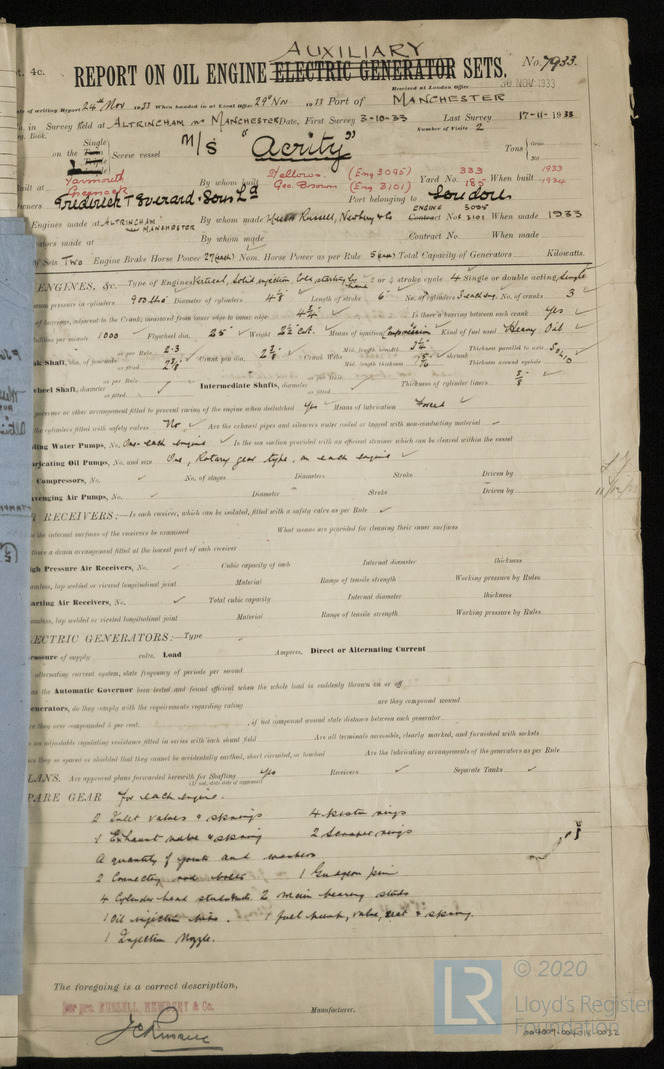 AUXILIARY
pt. 4c.
REPORT ON OIL ENGINE ELECTRIC GENERATOR SETS.
No. 7933.
Received at London Office 30 NOV 1933
Date of writing Report 24th Nov 1933 When handed in at Local Office 29th Nov 1933 Port of MANCHESTER
No. in Survey held at ALTRINCHAM nr MANCHESTER Date, First Survey 3-10-33 Last Survey 17-11-1933
Reg. Book. Number of Visits 2
Single
on the Screw vessel M/S "Acrity" Tons Gross
Net
Built at Yarmouth By whom built Fellows. (Eng 3095) Yard No. 333 When built 1933
Greenock Geo. Brown (Eng 3101) 185 1934
Owners Frederick T Everard & Sons Ld Port belonging to London
Engines made at ALTRINCHAM near MANCHESTER By whom made Messrs Russell, Newbery & Co ENGINE Contract No. 3095 3101 When made 1933
Generators made at By whom made Contract No. When made
No. of Sets Two Engine Brake Horse Power 27 (each) Nom. Horse Power as per Rule 5 (each) Total Capacity of Generators Kilowatts.
ENGINES, &c. Type of Engines Vertical, Solid injection, Cold starting by hand 2 or 4 stroke cycle 4 Single or double acting Single
pressure in cylinders 900 lbs Diameter of cylinders 4 1/8 Length of stroke 6" No. of cylinders 3 each eng. No. of cranks 3
of bearings, adjacent to the Crank, measured from inner edge to inner edge 4 3/4" Is there a bearing between each crank Yes
Revolutions per minute 1000 Flywheel dia. 25" Weight 2 1/2 Cwt. Means of ignition Compression Kind of fuel used Heavy Oil
Crank Shaft, dia. of journals as per Rule 2.3 as fitted 2 3/8 Crank pin dia. 2 3/8 Crank Webs Mid. length breadth Mid. length thickness Thickness parallel to axis Thickness around eyehole
shrunk
Flywheel Shaft, diameter as per Rule as fitted Intermediate Shafts, diameter as per Rule as fitted Thickness of cylinder liners
governor or other arrangement fitted to prevent racing of the engine when declutched Yes Means of lubrication Forced
the cylinders fitted with safety valves No Are the exhaust pipes and silencers water cooled or lagged with non-conducting material
Cooling Water Pumps, No. One each engine Is the sea suction provided with an efficient strainer which can be cleared within the vessel
Lubricating Oil Pumps, No. and size One, Rotary gear type, on each engine
Air Compressors, No. No. of stages Diameters Stroke Driven by
Scavenging Air Pumps, No. Diameter Stroke Driven by
AIR RECEIVERS:—Is each receiver, which can be isolated, fitted with a safety valve as per Rule
the internal surfaces of the receivers be examined What means are provided for cleaning their inner surfaces
there a drain arrangement fitted at the lowest part of each receiver
High Pressure Air Receivers, No. Cubic capacity of each Internal diameter thickness
Seamless, lap welded or riveted longitudinal joint Material Range of tensile strength Working pressure by Rules
Starting Air Receivers, No. Total cubic capacity Internal diameter thickness
Seamless, lap welded or riveted longitudinal joint Material Range of tensile strength Working pressure by Rules
ELECTRIC GENERATORS:—Type
Pressure of supply volts. Load Amperes. Direct or Alternating Current
alternating current system, state frequency of periods per second
Has the Automatic Governor been tested and found efficient when the whole load is suddenly thrown on or off
Generators, do they comply with the requirements regarding rating are they compound wound
are they over compounded 5 per cent. , if not compound wound state distance between each generator
an adjustable regulating resistance fitted in series with each shunt field Are all terminals accessible, clearly marked, and furnished with sockets
are they so spaced or shielded that they cannot be accidentally earthed, short circuited, or touched Are the lubricating arrangements of the generators as per Rule
PLANS. Are approved plans forwarded herewith for Shafting Yes Receivers Separate Tanks
(If not, state date of approval)
SPARE GEAR for each engine.
2 Inlet valves & springs 4 piston rings
Exhaust valve & spring 2 Scraper rings
A quantity of joints and washers
2 Connecting rod bolts 1 Gudgeon pin
4 Cylinder head studs & nuts 2 main bearing studs
1 Oil injection tube. 1 fuel pump, valve, seat & spring.
1 Injection Nozzle.
The foregoing is a correct description,
per pro. RUSSELL, NEWBERY & Co.
Manufacturer.
© 2020
LR
Lloyd's Register
Foundation
004009-004018-0032